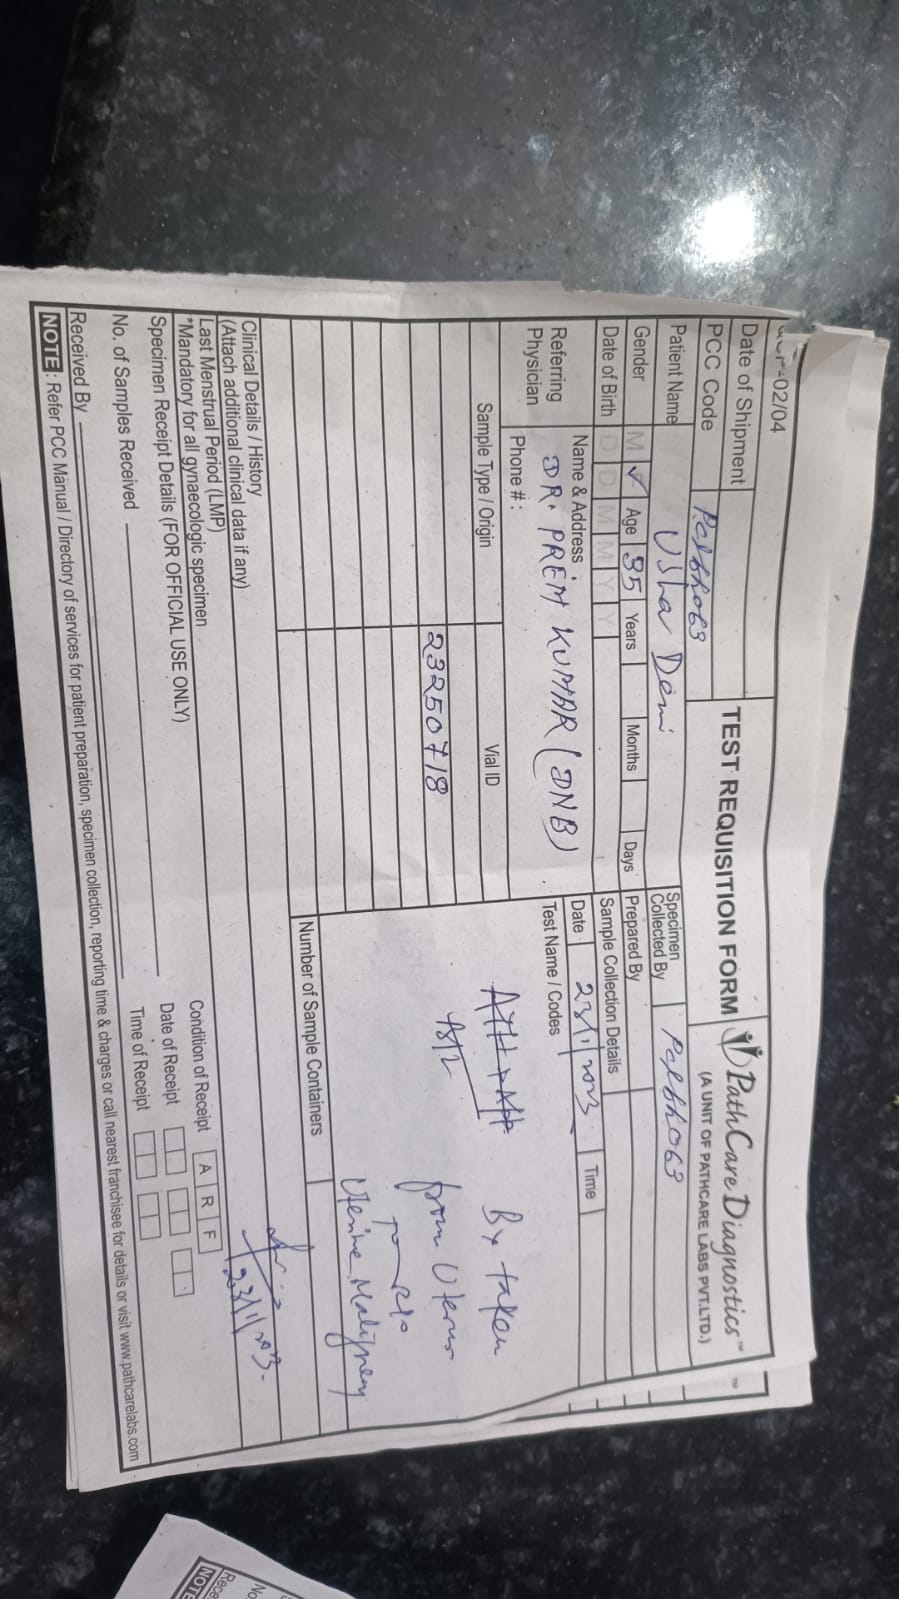 -02/04
TEST REQUISITION FORM
PathCare Diagnostics™
(A UNIT OF PATHCARE LABS PVT.LTD.)
Date of Shipment
PCC Code
Patient Name Usha Devi
Specimen Collected By
Gender M ✓ Age 35 Years Months Days
Prepared By
Date of Birth D D M M Y Y
Sample Collection Details
Date 23/11/2023 Time
Referring Physician
Name & Address :
DR. PREM KUMAR (DNB)
Phone # :
Test Name / Codes
Sample Type / Origin
Vial ID
23250718
Bx taken
from Uterus
R/o
Uterine Malignency
Number of Sample Containers
23/11/2023.
Clinical Details / History
(Attach additional clinical data if any)
Last Menstrual Period (LMP)
*Mandatory for all gynaecologic specimen
Specimen Receipt Details (FOR OFFICIAL USE ONLY)
Condition of Receipt A R F
No. of Samples Received
Date of Receipt
Received By
Time of Receipt
NOTE : Refer PCC Manual / Directory of services for patient preparation, specimen collection, reporting time & charges or call nearest franchisee for details or visit www.pathcarelabs.com